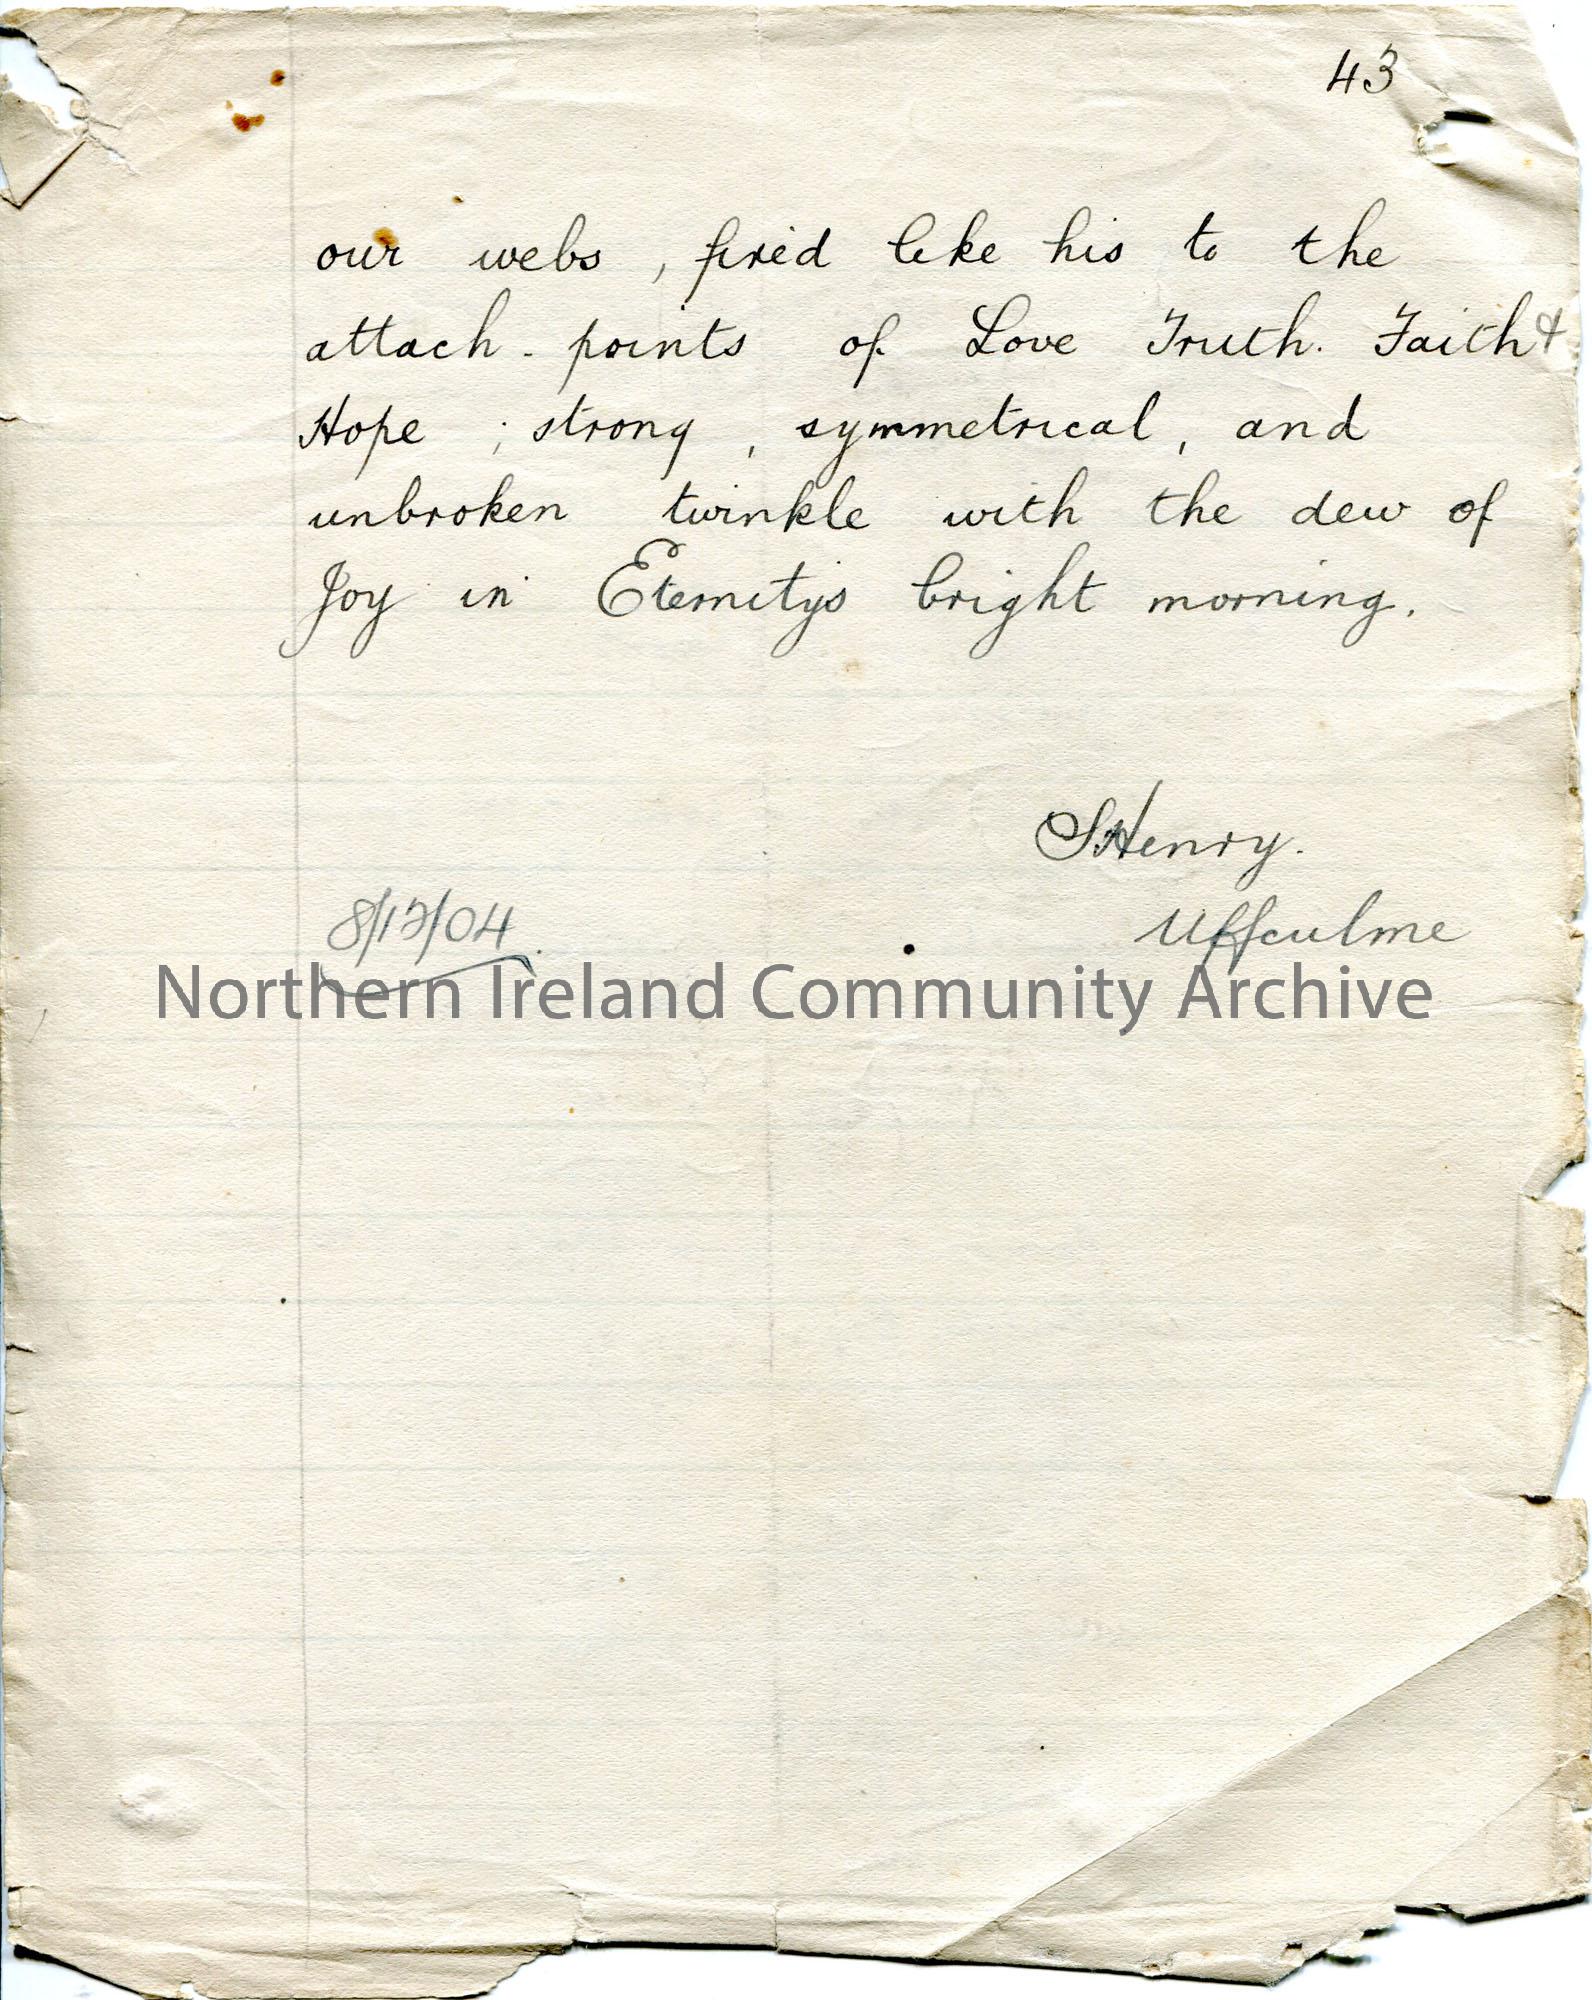 43
our webs, fixed like his to the
attach-points of Love Truth. Faith &
Hope ; strong, symmetrical, and
unbroken twinkle with the dew of
Joy in Eternitys bright morning.
SHenry.
8/12/04.
Uffculme
Northern Ireland Community Archive